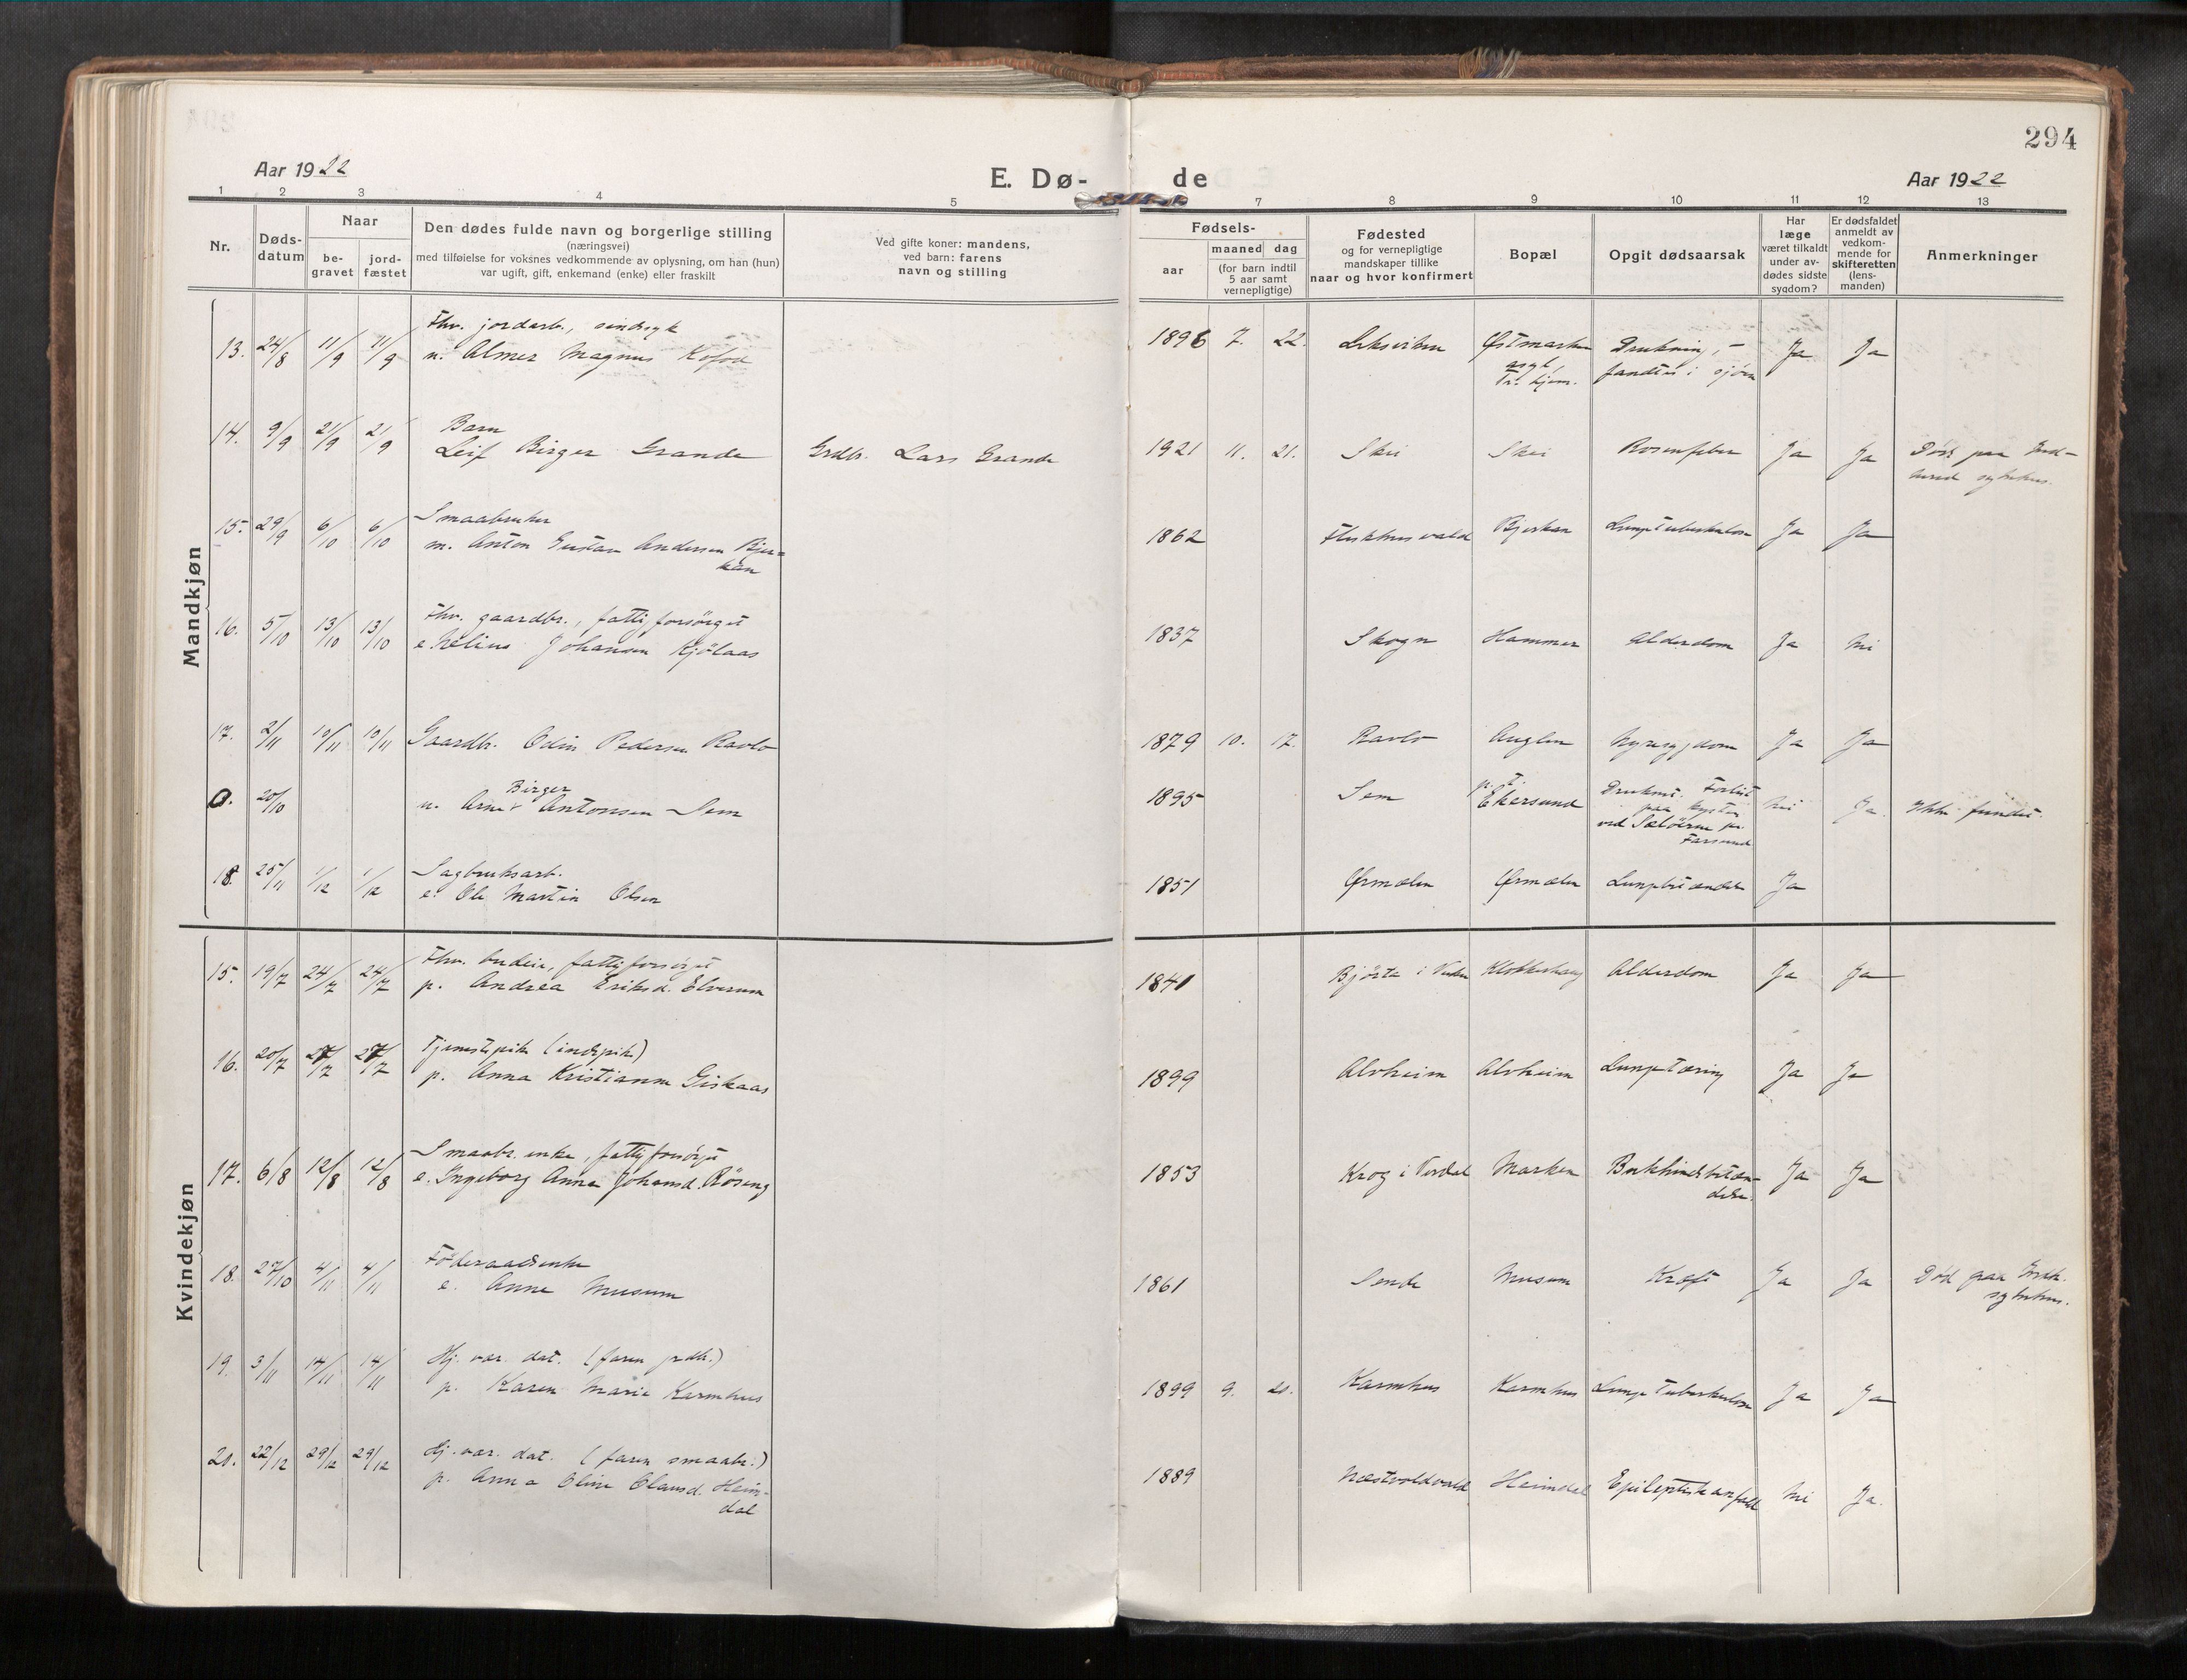 294
Aar 1922
E. Dø-
de
Aar 1922
1 2 3 4 5 7 8 9 10 11 12 13
Nr.
Døds-
datum
Naar
be-
gravet
jord-
fæstet
Den dødes fulde navn og borgerlige stilling
(næringsvei)
med tilføielse for voksnes vedkommende av oplysning, om han (hun)
var ugift, gift, enkemand (enke) eller fraskilt
Ved gifte koner: mandens,
ved barn: farens
navn og stilling
Fødsels-
aar
maaned dag
(for barn indtil
5 aar samt
vernepligtige)
Fødested
og for vernepligtige
mandskaper tillike
naar og hvor konfirmert
Bopæl
Opgit dødsaarsak
Har
læge
været tilkaldt
under av-
dødes sidste
sygdom?
Er dødsfaldet
anmeldt av
vedkom-
mende for
skifteretten
(lens-
manden)
Anmerkninger
Mandkjøn
Fhv. jordarb., sindssyk
13. 24/8 11/9 11/9 u. Almer Magnus Kofod 1896 7. 22. Leksviken Østmarken Drukning, – Ja Ja
asyl, fandtes i sjøen
Tr.hjem.
Barn
14. 9/9 21/9 21/9 Leif Birger Grande Grdbr. Lars Grande 1921 11. 21. Skei Skei Rosenfeber Ja Ja Død paa Ind-
herred sykehus.
Smaabruker
15. 29/9 6/10 6/10 m. Anton Gustav Andersen Bjer= 1862 Bjerkan Lungetuberkulose Ja Ja
kan
Fhv. gaardbr., fattigforsørget
16. 5/10 13/10 13/10 e. Johansen Kjølaas 1837 Skogn Hammer Alderdom Ja Nei
17. 2/11 10/11 10/11 Gaardbr. Odin Pedersen Ravlo 1879 10. 17. Ravlo Auglen Nyresygdom Ja Ja
Birger
0. 20/10 u. Arne Antonsen Sem 1895 Sem p.t. Ekersund Druknet. Forlist Nei Ja. Ikke fundet.
paa kysten
ved Seløerne pr.
Farsund
Sagbruksarb.
18. 25/11 1/12 1/12 e. Ole Martin Olsen 1851 Ørmelen Ørmelen Lungebetændelse Ja
Kvindekjøn
Fhv. budeie, fattigforsørget
15. 19/7 24/7 24/7 p. Andrea Eriksd. Elverum 1841 Klokkerhaug Alderdom Ja Ja
Tjenestepike (indepike)
16. 20/7 27/7 27/7 p. Anna Kristianna Giskaas 1899 Alvheim Alvheim Lungetæring Ja Ja
Smaabr.enke, fattigforsørget
17. 6/8 12/8 12/8 e. Ingeborg Anna Johansd. Røseng 1853 Krog i Verdal Marken Bukhindebetæn- Ja Ja
delse.
Føderaadsenke
18. 27/10 4/11 4/11 e. Anne Musum 1861 Sende Musum Kræft Ja Ja Død paa Indh.
sykehus.
Hj. vær. dat. (faren grdb.)
19. 3/11 14/11 14/11 p. Karen Marie Karmhus 1899 9. 20. Karmhus Karmhus Lungetuberkulose Ja Ja
Hj. vær. dat. (faren smaabr.)
20. 22/12 29/12 29/12 p. Anna Oline Olausd. Heim- 1889 Næstvoldvald Heimdal Epileptisk anfald Nei Ja.
dal